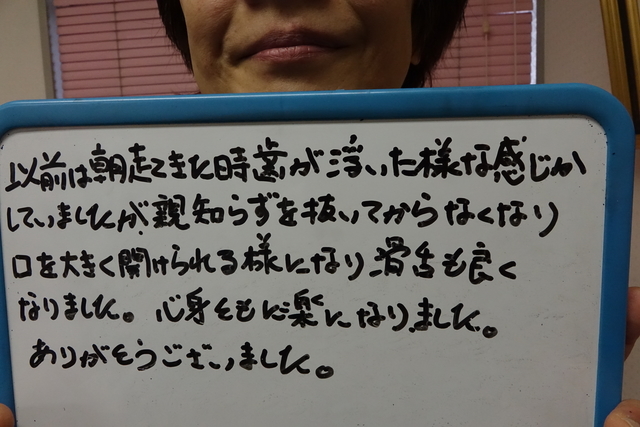 以前は朝起てきた時歯が浮いた様な感じが
していましたが親知らずを抜いてからなくなり
口を大きく開けられる様になり滑舌も良く
なりました。心身ともに楽になりました。
ありがとうございました。